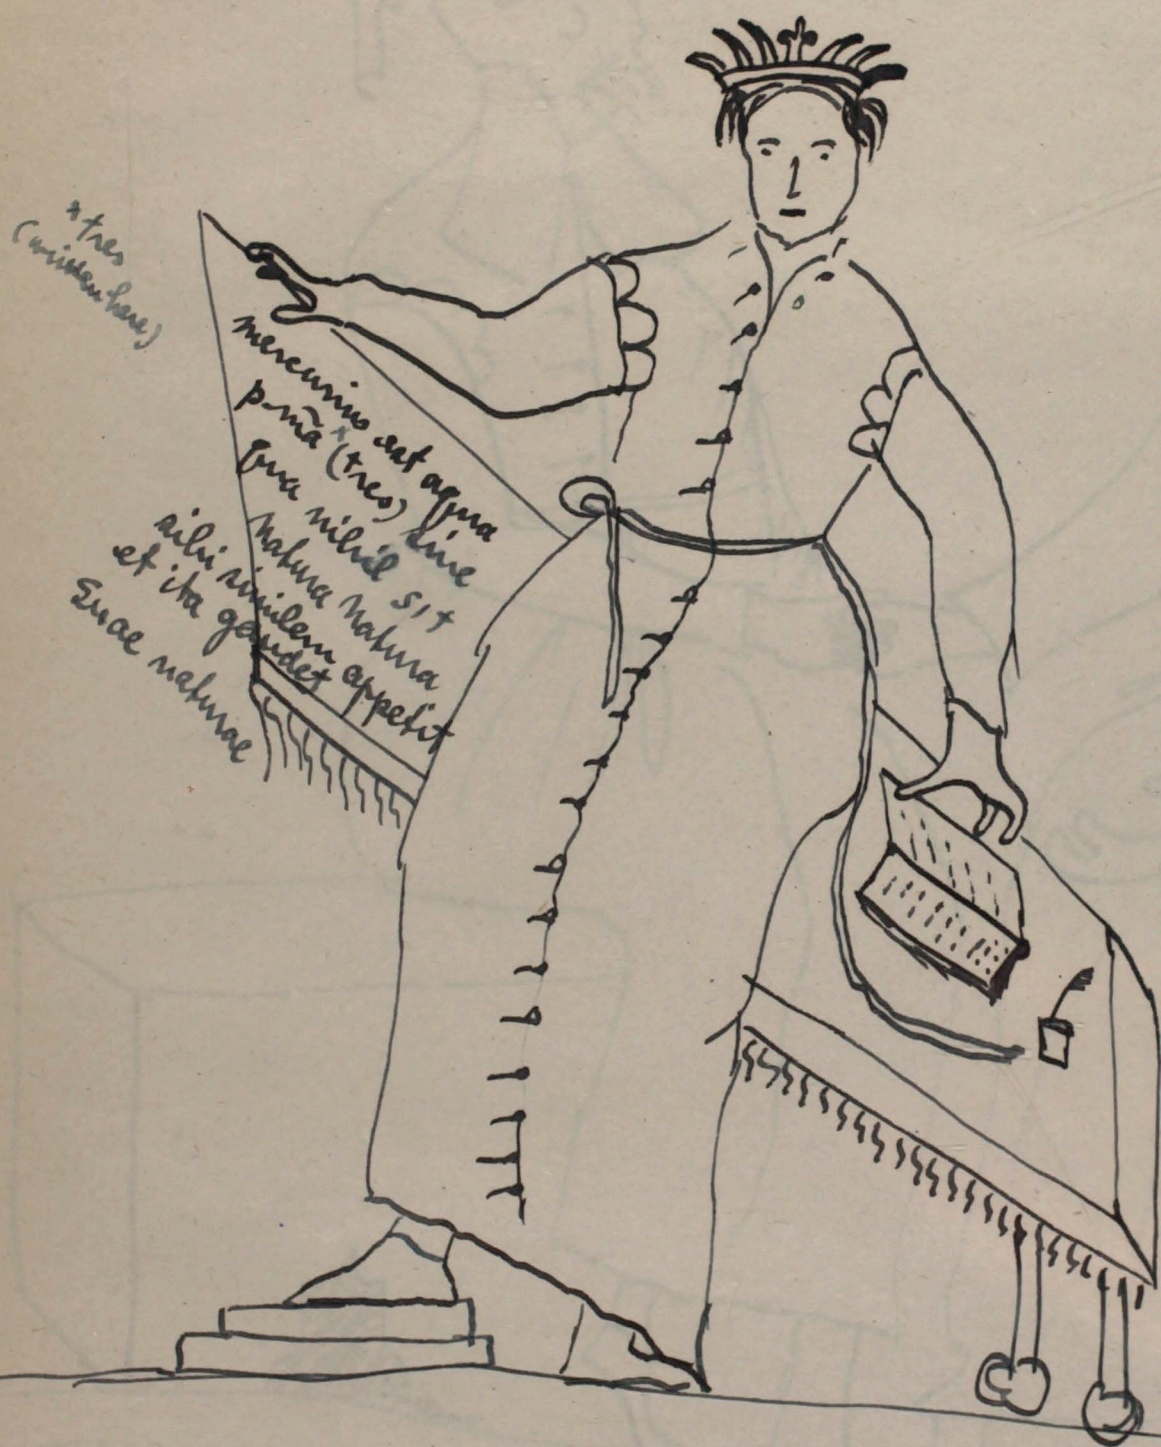 * tres
(written here)
mercurius est aqua
p-mã * (tres) sine
qua nihil sit
natura natura
sibi similem appetit
et ita gaudet
suae naturae